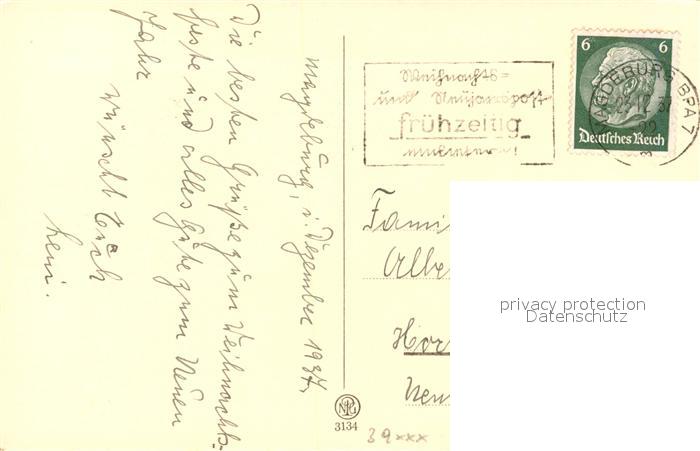 Magdeburg, i. Dezember 1937,
Die besten Grüße zum Weihnachts-
feste und alles Gute zum Neuen
Jahr
wünscht Euch
Leni.
Weihnachts=
und Neujahrspost
frühzeitig
einliefern!
6 6
Deutsches Reich
MAGDEBURG BPA 7
Fami
Albe
Hor
Neu
privacy protection
Datenschutz
3134
39xxx